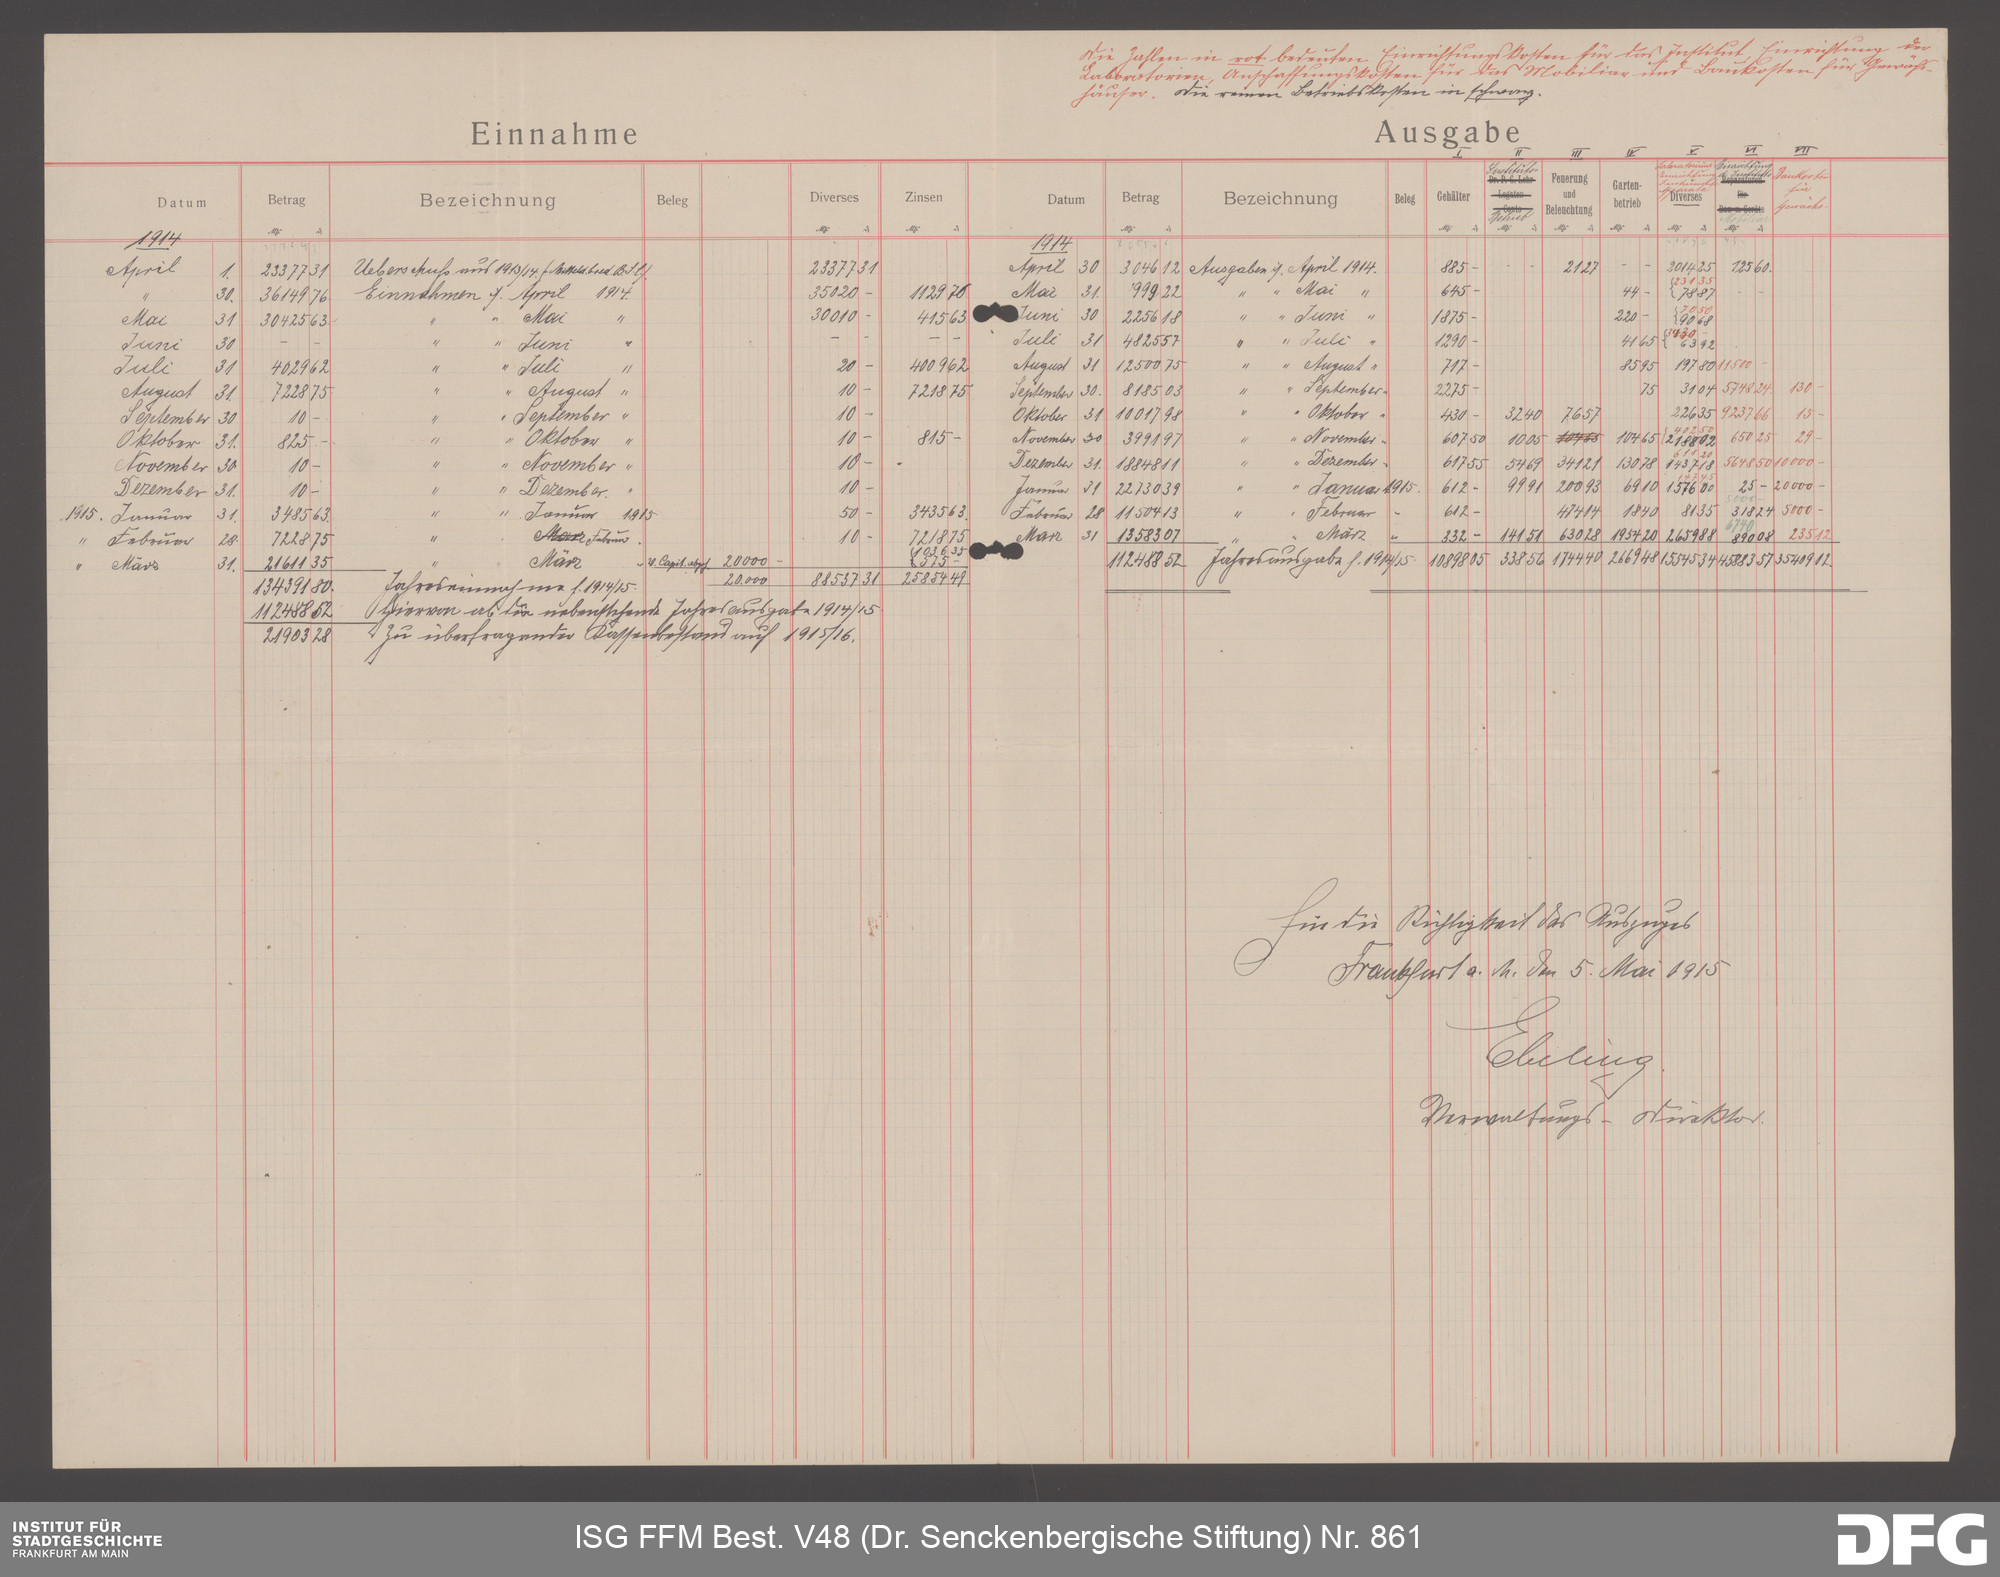 Die Zahlen in rot bedeuten Einrichtungskosten für das Institut, Einrichtung der
Laboratorien, Anschaffungskosten für das Mobiliar und Baukosten für Gewächs-
häuser. Die reinen Betriebskosten in schwarz.
Einnahme
Datum Betrag Bezeichnung Beleg Diverses Zinsen
1914
April 1. 23377 31 Ueberschuss aus 1913/14 23377 31
" 30. 36149 76 Einnahmen i/. April 1914. 35020 - 1129 76
Mai 31 30425 63 " " Mai " 30010 - 415 63
Juni 30 - - " " Juni " - - - -
Juli 31 4029 62 " " Juli " 20 - 4009 62
August 31. 7228 75 " " August " 10 - 7218 75
September 30 10 - " " September " 10 -
Oktober 31. 825 - " " Oktober " 10 - 815 -
November 30 10 - " " November " 10 -
Dezember 31. 10 - " " Dezember. " 10 -
1915. Januar 31. 3485 63 " " Januar 1915 50 - 3435 63
" Februar 28. 7228 75 " März Februar 10 - 7218 75
" März 31. 21611 35 " März 20000 - 1036 35 575 -
134391 80. Jahreseinnahme f. 1914/15. 20.000 88537 31 25854 49
112488 52 Hiervon ab die nebenstehende Jahresausgabe 1914/15
21903 28 Zu übertragender Kassenbestand auf 1915/16.
Ausgabe
I II III IV V VI VII
Datum Betrag Bezeichnung Beleg Gehälter Instituts- Dr. P. G. Lehr- Legaten- Conto Betrieb Feuerung und Beleuchtung Garten-betrieb Diverses Reparaturen für Bau- u. Geräte Baukosten für Gewächs-
1914
April 30 3046 12 Ausgaben i/. April 1914. 885 - - - 21 27 - - 2014 25 125 60.
Mai 31. 999 22 " " Mai " 645 - 44 - 231 35 78 87 - -
Juni 30 2256 18 " " Juni " 1875 - 220 - 70 50 90 68
Juli 31 4825 57 " " Juli " 1290 - 41 65 3430 - 63 92
August 31 12500 75 " " August " 717 - 85 95 197 80 11500 -
September 30. 8185 03 " " September " 2275 - 75 31 04 5748 24 130 -
Oktober 31 10017 98 " " Oktober " 430 - 32 40 76 57 226 35 9237 66 15 -
November 30 3991 97 " " November " 607 50 10 05 104 65 104 65 402 50 2188 02 650 25 29 -
Dezember 31. 18848 11 " " Dezember " 617 55 54 69 341 21 130 78 611 20 1437 18 5648 50 10000 -
Januar 31 22730 39 " " Januar 1915. 612 - 99 91 200 93 69 10 1576 00 25 - 20000 -
Februar 28 11504 13 " " Februar " 612 - 474 14 18 40 81 35 5000 - 318 24 5000 -
März 31 13583 07 " " März " 332 - 141 51 630 28 1954 20 2659 88 6740 890 08 235 12
112488 52 Jahresausgabe f. 1914/15 10898 05 338 56 1744 40 2669 48 15545 34 45883 57 35409 12
Für die Richtigkeit des Auszuges
Frankfurt a. M. den 5. Mai 1915
Ebeling
Verwaltungs-Direktor.
INSTITUT FÜR
STADTGESCHICHTE
FRANKFURT AM MAIN
ISG FFM Best. V48 (Dr. Senckenbergische Stiftung) Nr. 861
DFG